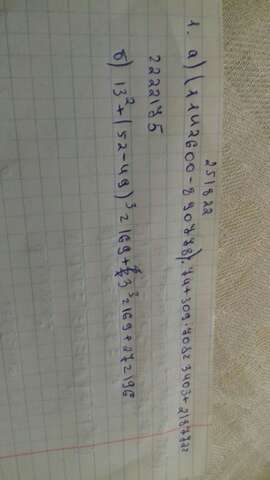 251822
1. а) (1142600-890778):74+309·708=3403+218772=
=222175
б) 13²+(52-49)³=169+3³=169+27=196